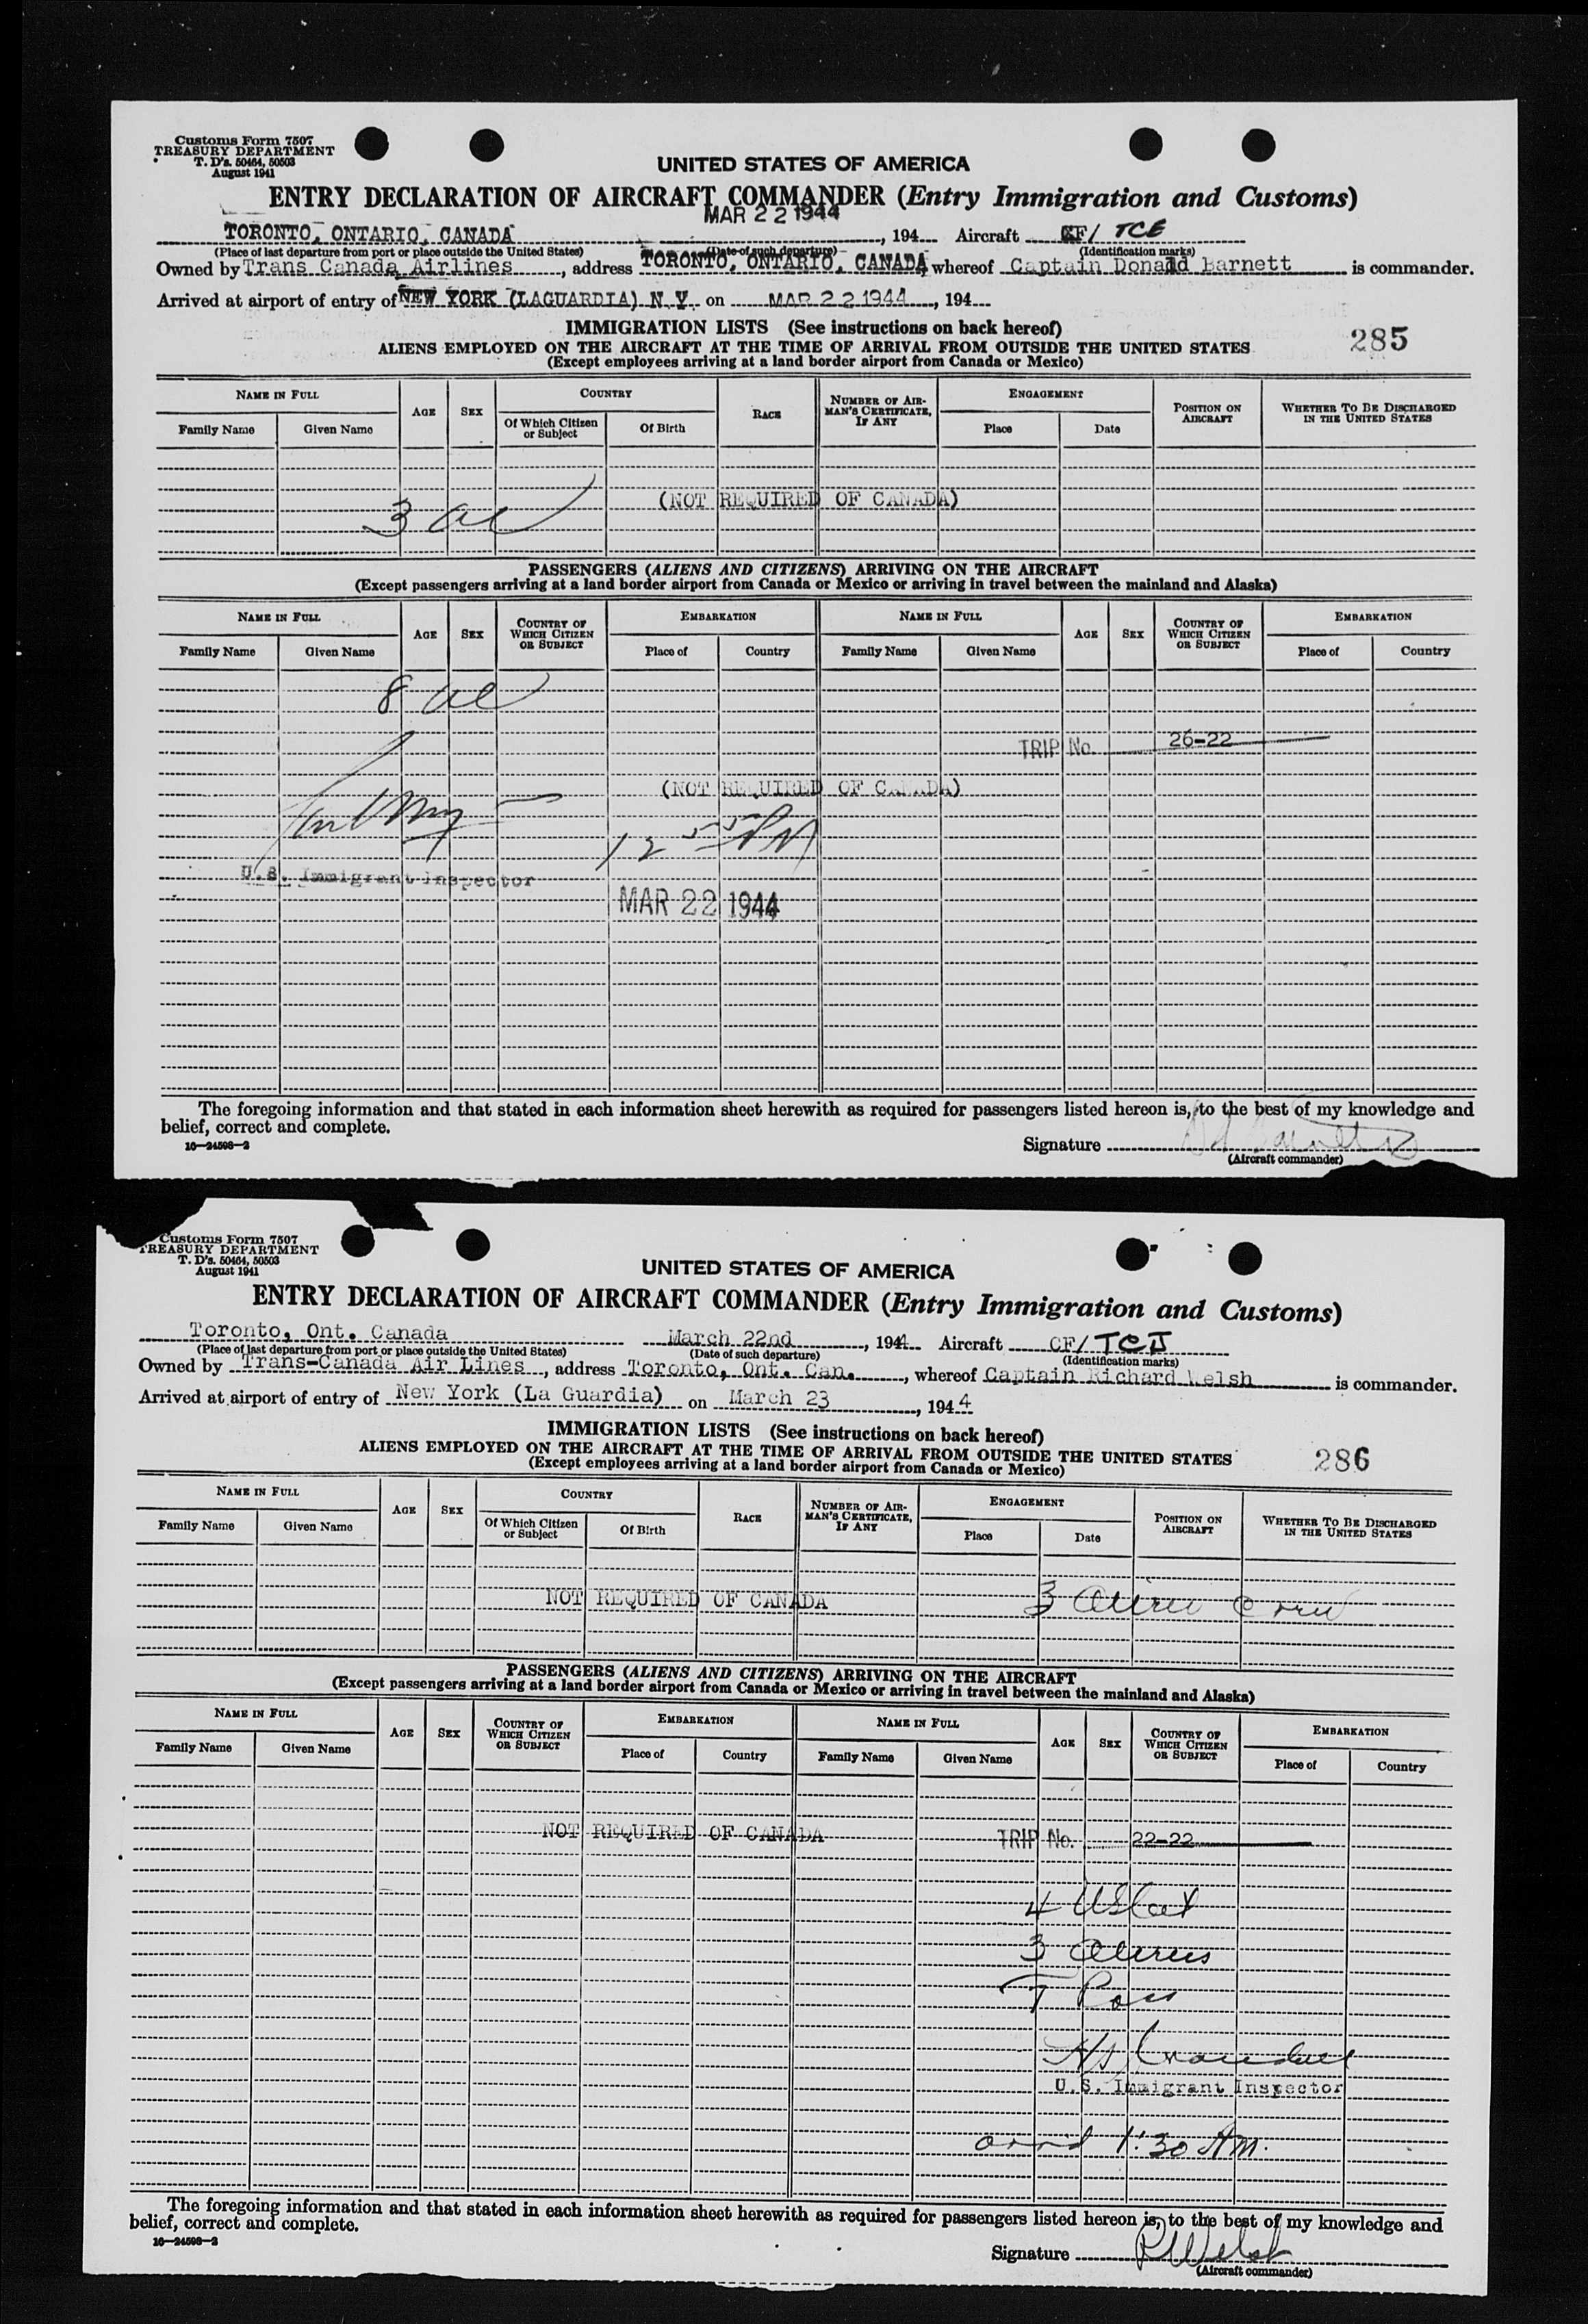 Customs Form 7507
TREASURY DEPARTMENT
T. D's. 50464, 50503
August 1941
UNITED STATES OF AMERICA
ENTRY DECLARATION OF AIRCRAFT COMMANDER (Entry Immigration and Customs)
MAR 22 1944
TORONTO, ONTARIO, CANADA , 194 Aircraft CF/ TCE
(Place of last departure from port or place outside the United States) (Date of such departure) (Identification marks)
Owned by Trans Canada Airlines , address TORONTO, ONTARIO, CANADA whereof Captain Donald Barnett is commander.
Arrived at airport of entry of NEW YORK (LAGUARDIA) N.Y. on MAR 22 1944 , 194
IMMIGRATION LISTS (See instructions on back hereof)
285
ALIENS EMPLOYED ON THE AIRCRAFT AT THE TIME OF ARRIVAL FROM OUTSIDE THE UNITED STATES
(Except employees arriving at a land border airport from Canada or Mexico)
NAME IN FULL AGE SEX COUNTRY RACE NUMBER OF AIRMAN'S CERTIFICATE, IF ANY ENGAGEMENT POSITION ON AIRCRAFT WHETHER TO BE DISCHARGED IN THE UNITED STATES
Family Name Given Name Of Which Citizen or Subject Of Birth Place Date
(NOT REQUIRED OF CANADA)
3 al
PASSENGERS (ALIENS AND CITIZENS) ARRIVING ON THE AIRCRAFT
(Except passengers arriving at a land border airport from Canada or Mexico or arriving in travel between the mainland and Alaska)
NAME IN FULL AGE SEX COUNTRY OF WHICH CITIZEN OR SUBJECT EMBARKATION NAME IN FULL AGE SEX COUNTRY OF WHICH CITIZEN OR SUBJECT EMBARKATION
Family Name Given Name Place of Country Family Name Given Name Place of Country
8 al
TRIP No. 26-22
(NOT REQUIRED OF CANADA)
12 55 PM
U.S. Immigrant Inspector
MAR 22 1944
The foregoing information and that stated in each information sheet herewith as required for passengers listed hereon is, to the best of my knowledge and
belief, correct and complete.
16—24598—2
Signature
(Aircraft commander)
Customs Form 7507
TREASURY DEPARTMENT
T. D's. 50464, 50503
August 1941
UNITED STATES OF AMERICA
ENTRY DECLARATION OF AIRCRAFT COMMANDER (Entry Immigration and Customs)
Toronto, Ont. Canada March 22nd , 1944 Aircraft CF/ TCJ
(Place of last departure from port or place outside the United States) (Date of such departure) (Identification marks)
Owned by Trans-Canada Air Lines , address Toronto, Ont. Can. , whereof Captain Richard Welsh is commander.
Arrived at airport of entry of New York (La Guardia) on March 23 , 1944
IMMIGRATION LISTS (See instructions on back hereof)
ALIENS EMPLOYED ON THE AIRCRAFT AT THE TIME OF ARRIVAL FROM OUTSIDE THE UNITED STATES
286
(Except employees arriving at a land border airport from Canada or Mexico)
NAME IN FULL AGE SEX COUNTRY RACE NUMBER OF AIRMAN'S CERTIFICATE, IF ANY ENGAGEMENT POSITION ON AIRCRAFT WHETHER TO BE DISCHARGED IN THE UNITED STATES
Family Name Given Name Of Which Citizen or Subject Of Birth Place Date
NOT REQUIRED OF CANADA 3 Alien Crew
PASSENGERS (ALIENS AND CITIZENS) ARRIVING ON THE AIRCRAFT
(Except passengers arriving at a land border airport from Canada or Mexico or arriving in travel between the mainland and Alaska)
NAME IN FULL AGE SEX COUNTRY OF WHICH CITIZEN OR SUBJECT EMBARKATION NAME IN FULL AGE SEX COUNTRY OF WHICH CITIZEN OR SUBJECT EMBARKATION
Family Name Given Name Place of Country Family Name Given Name Place of Country
NOT REQUIRED OF CANADA TRIP No. 22-22
4 US
3 Aliens
7 Pass
U.S. Immigrant Inspector
arrd 1:30 AM.
The foregoing information and that stated in each information sheet herewith as required for passengers listed hereon is, to the best of my knowledge and
belief, correct and complete.
16—24598—2
Signature R Welsh
(Aircraft commander)